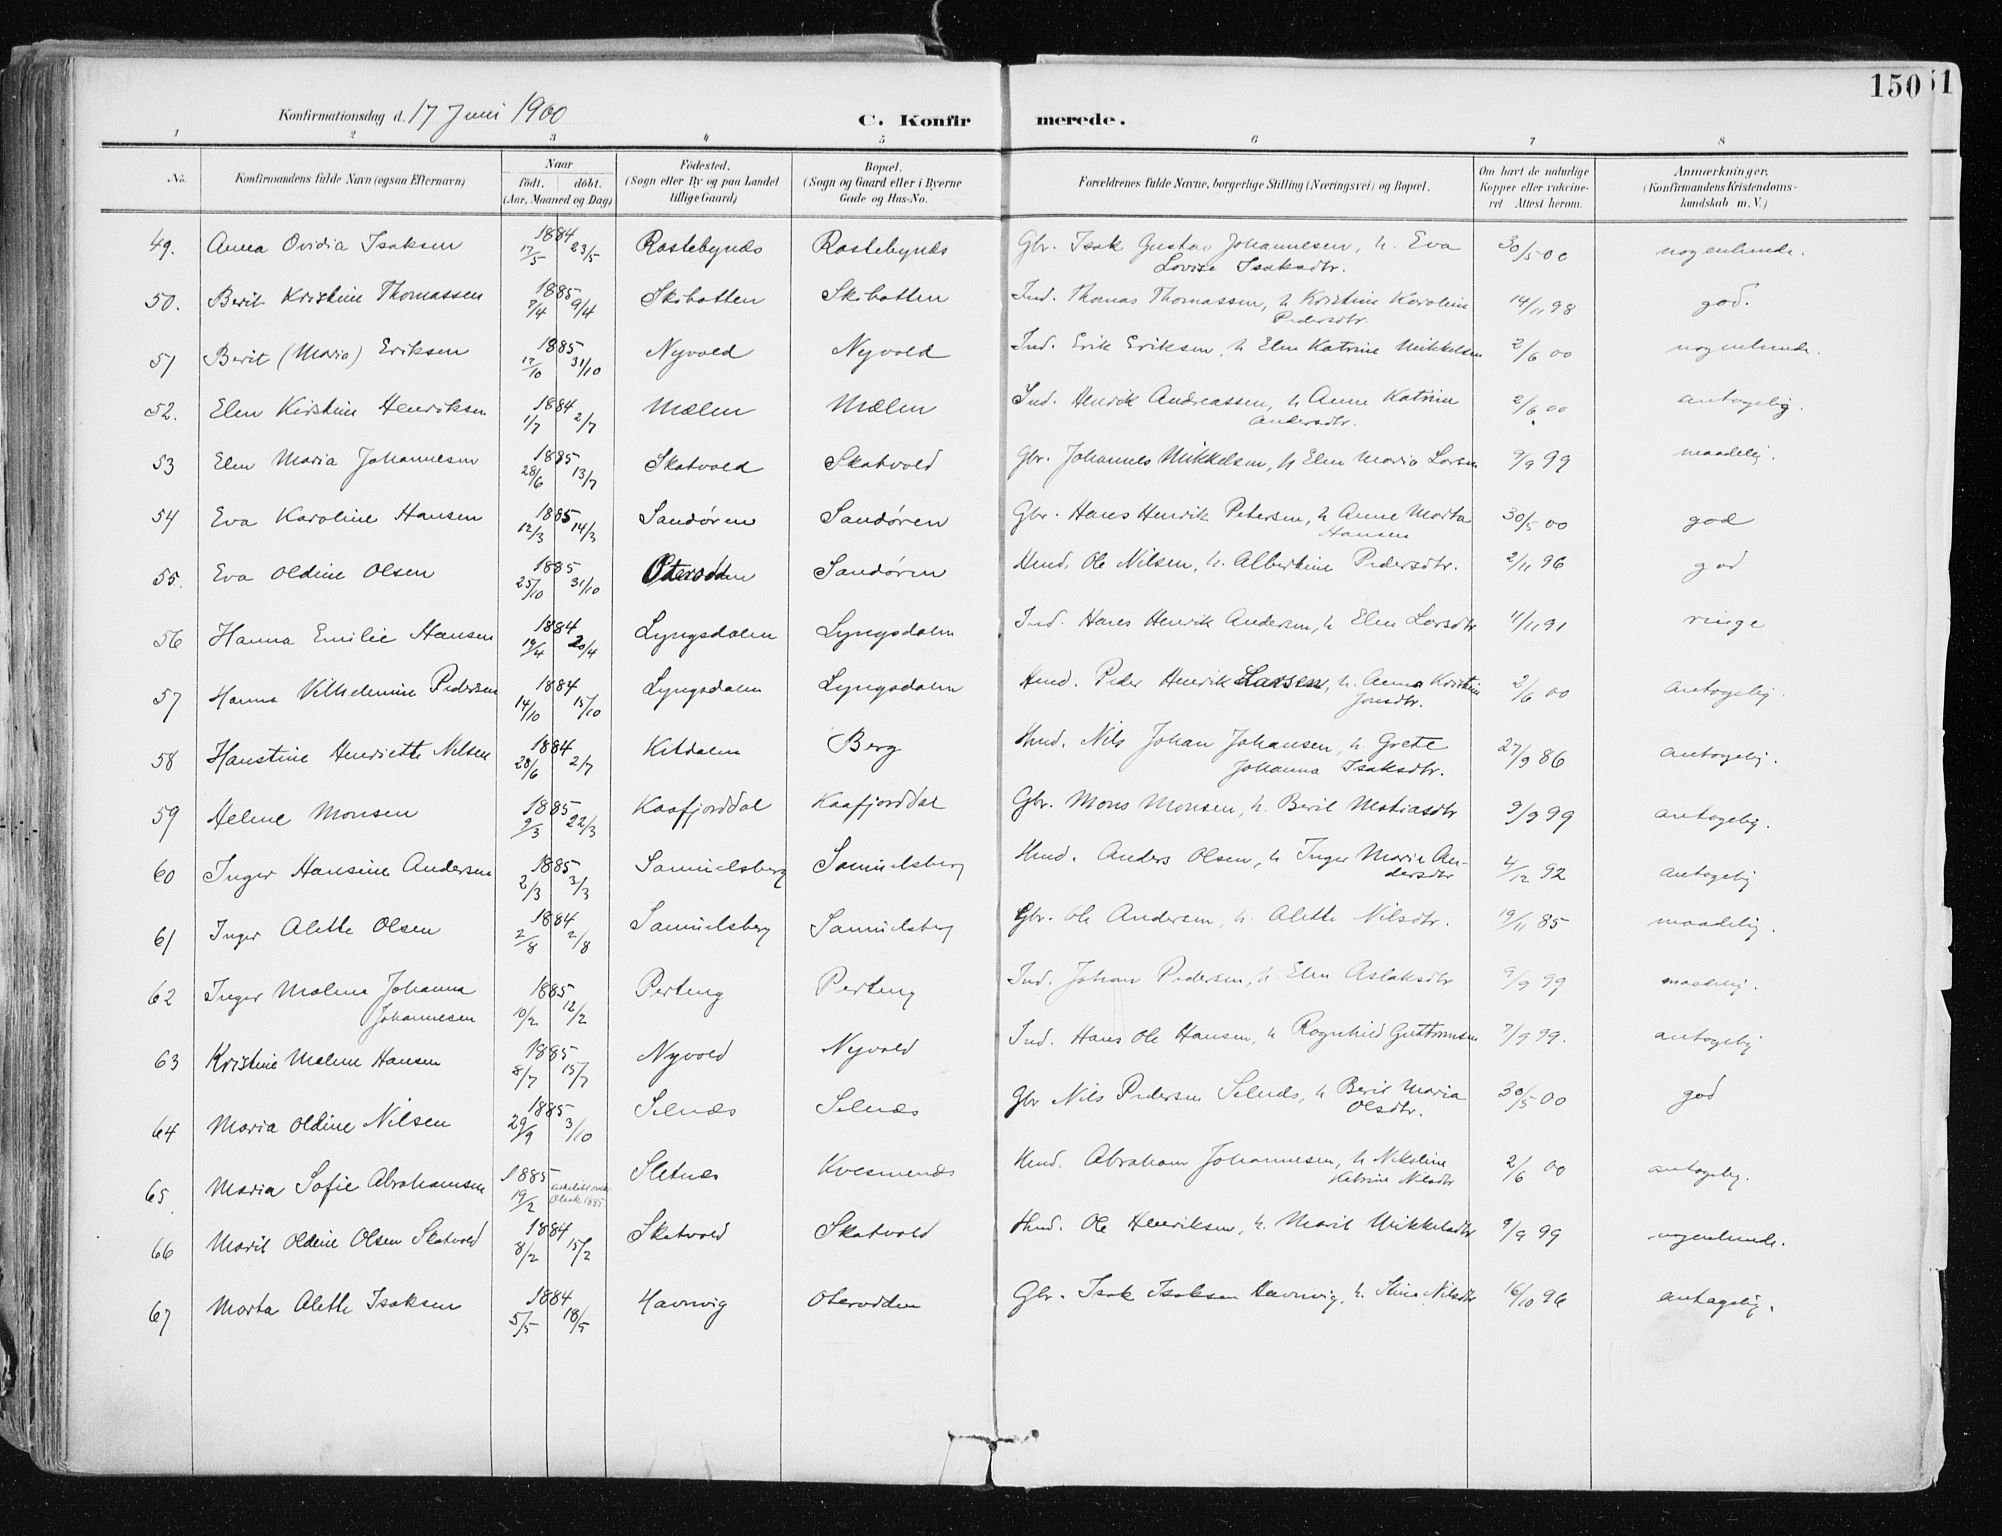 150
51
Konfirmationsdag d. 17 Juni 1900
C. Konfirmerede.
1 2 3 4 5 6 7 8
No. Konfirmandens fulde Navn (ogsaa Efternavn) Naar født. døbt. (Aar, Maaned og Dag) Fødested. (Sogn eller By og paa Landet tillige Gaard) Bopæl. (Sogn og Gaard eller i Byerne Gade og Hus-No. Forældrenes fulde Navne, borgerlige Stilling (Næringsvei) og Bopæl. Om havt de naturlige Kopper eller vakcineret Attest herom. Anmærkninger. (Konfirmandens Kristendomskundskab m. V.)
49. Anna Ovidia Isaksen 1884 17/5 23/5 Rastebynæs Rastebynæs Gbr. Isak Gustav Johannesen, h. Eva Lovise Isaksdtr. 30/5 00 nogenlunde.
50. Berit Kristine Thomassen 1885 7/4 9/4 Skibotten Skibotten Ind. Thomas Thomassen, h Kristine Karoline Pedersdtr. 14/11 98 god.
51 Berit (Maria) Eriksen 1885 17/10 31/10 Nyvold Nyvold Ind. Erik Eriksen, h Elen Katrine Mikkelsen 2/6 00 nogenlunde.
52. Elen Kirstine Henriksen 1884 1/7 2/7 Mælen Mælen Ind. Henrik Andreassen, h Anne Katrine Andersdtr. 2/6 00 antagelig.
53 Elen Maria Johannesen 1885 28/6 13/7 Skatvold Skatvold Gbr. Johannes Mikkelsen, h Elen Maria Larsen 9/9 99 maadelig.
54 Eva Karoline Hansen 1885 12/3 14/3 Sandøren Sandøren Gbr. Hans Henrik Petersen, h Anne Marta Hansen 30/5 00 god
55. Eva Oldine Olsen 1885 25/10 31/10 Oterodden Sandøren Hmd. Ole Nilsen, h. Albertine Pedersdtr. 2/11 96 god
56 Hanna Emilie Hansen 1884 19/4 20/4 Lyngsdalen Lyngsdalen Ind. Hans Henrik Andersen, h Elen Larsdtr 4/11 91 ringe
57 Hanna Vilhelmine Pedersen 1884 14/10 15/10 Lyngsdalen Lyngsdalen Hmd. Peder Henrik Larsen, h. Anna Kristine Jonsdtr. 2/6 00 antagelig.
58 Hanstine Henriette Nilsen 1884 28/6 2/7 Kitdalen Berg Hmd. Nils Johan Johansen, h Grete Johanna Isaksdtr. 27/9 86 antagelig.
59 Helene Monsen 1885 9/3 22/3 Kaafjorddal Kaafjorddal Gbr. Mons Monsen, h. Berit Matiasdtr 9/9 99 antagelig.
60 Inger Hansine Andersen 1885 2/3 3/3 Samuelsberg Samuelsberg Hmd. Anders Olsen, h Inger Marie Andersdtr 4/12 92 antagelig
61 Inger Alette Olsen 1884 2/8 2/8 Samuelsberg Samuelsberg Gbr. Ole Andersen, h. Alette Nilsdtr. 19/11 85 maadelig.
62 Inger Malene Johanna Johannesen 1885 10/2 12/2 Perteng Perteng Ind. Johan Pedersen, h. Elen Aslaksdtr 9/9 99 maadelig.
63 Kristine Malene Hansen 1885 8/7 15/7 Nyvold Nyvold Ind. Hans Ole Hansen, h Ragnhild Guttormsen 7/9 99. antagelig
64 Maria Oldine Nilsen 1885 29/9 3/10 Selnæs Selnæs Gbr Nils Pedersen Selnæs, h Berit Maria Olsdtr. 30/5 00 god
65. Maria Sofie Abrahamsen 1885 19/2 Olsok 1885. Sletnæs Kvesmenæs Hmd. Abraham Johannesen, h Nikoline Katrine Nilsdtr 2/6 00 antagelig.
66 Marit Oldine Olsen Skatvold 1884 8/2 15/2 Skatvold Skatvold Hmd. Ole Henriksen, h. Marit Mikkelsdtr 9/9 99 nogenlunde.
67 Marta Alette Isaksen 1884 5/5 18/5 Havnvig Oterodden Gbr. Isak Isaksen Havnvig, h. Stine Nilsdtr 16/10 96 antagelig.